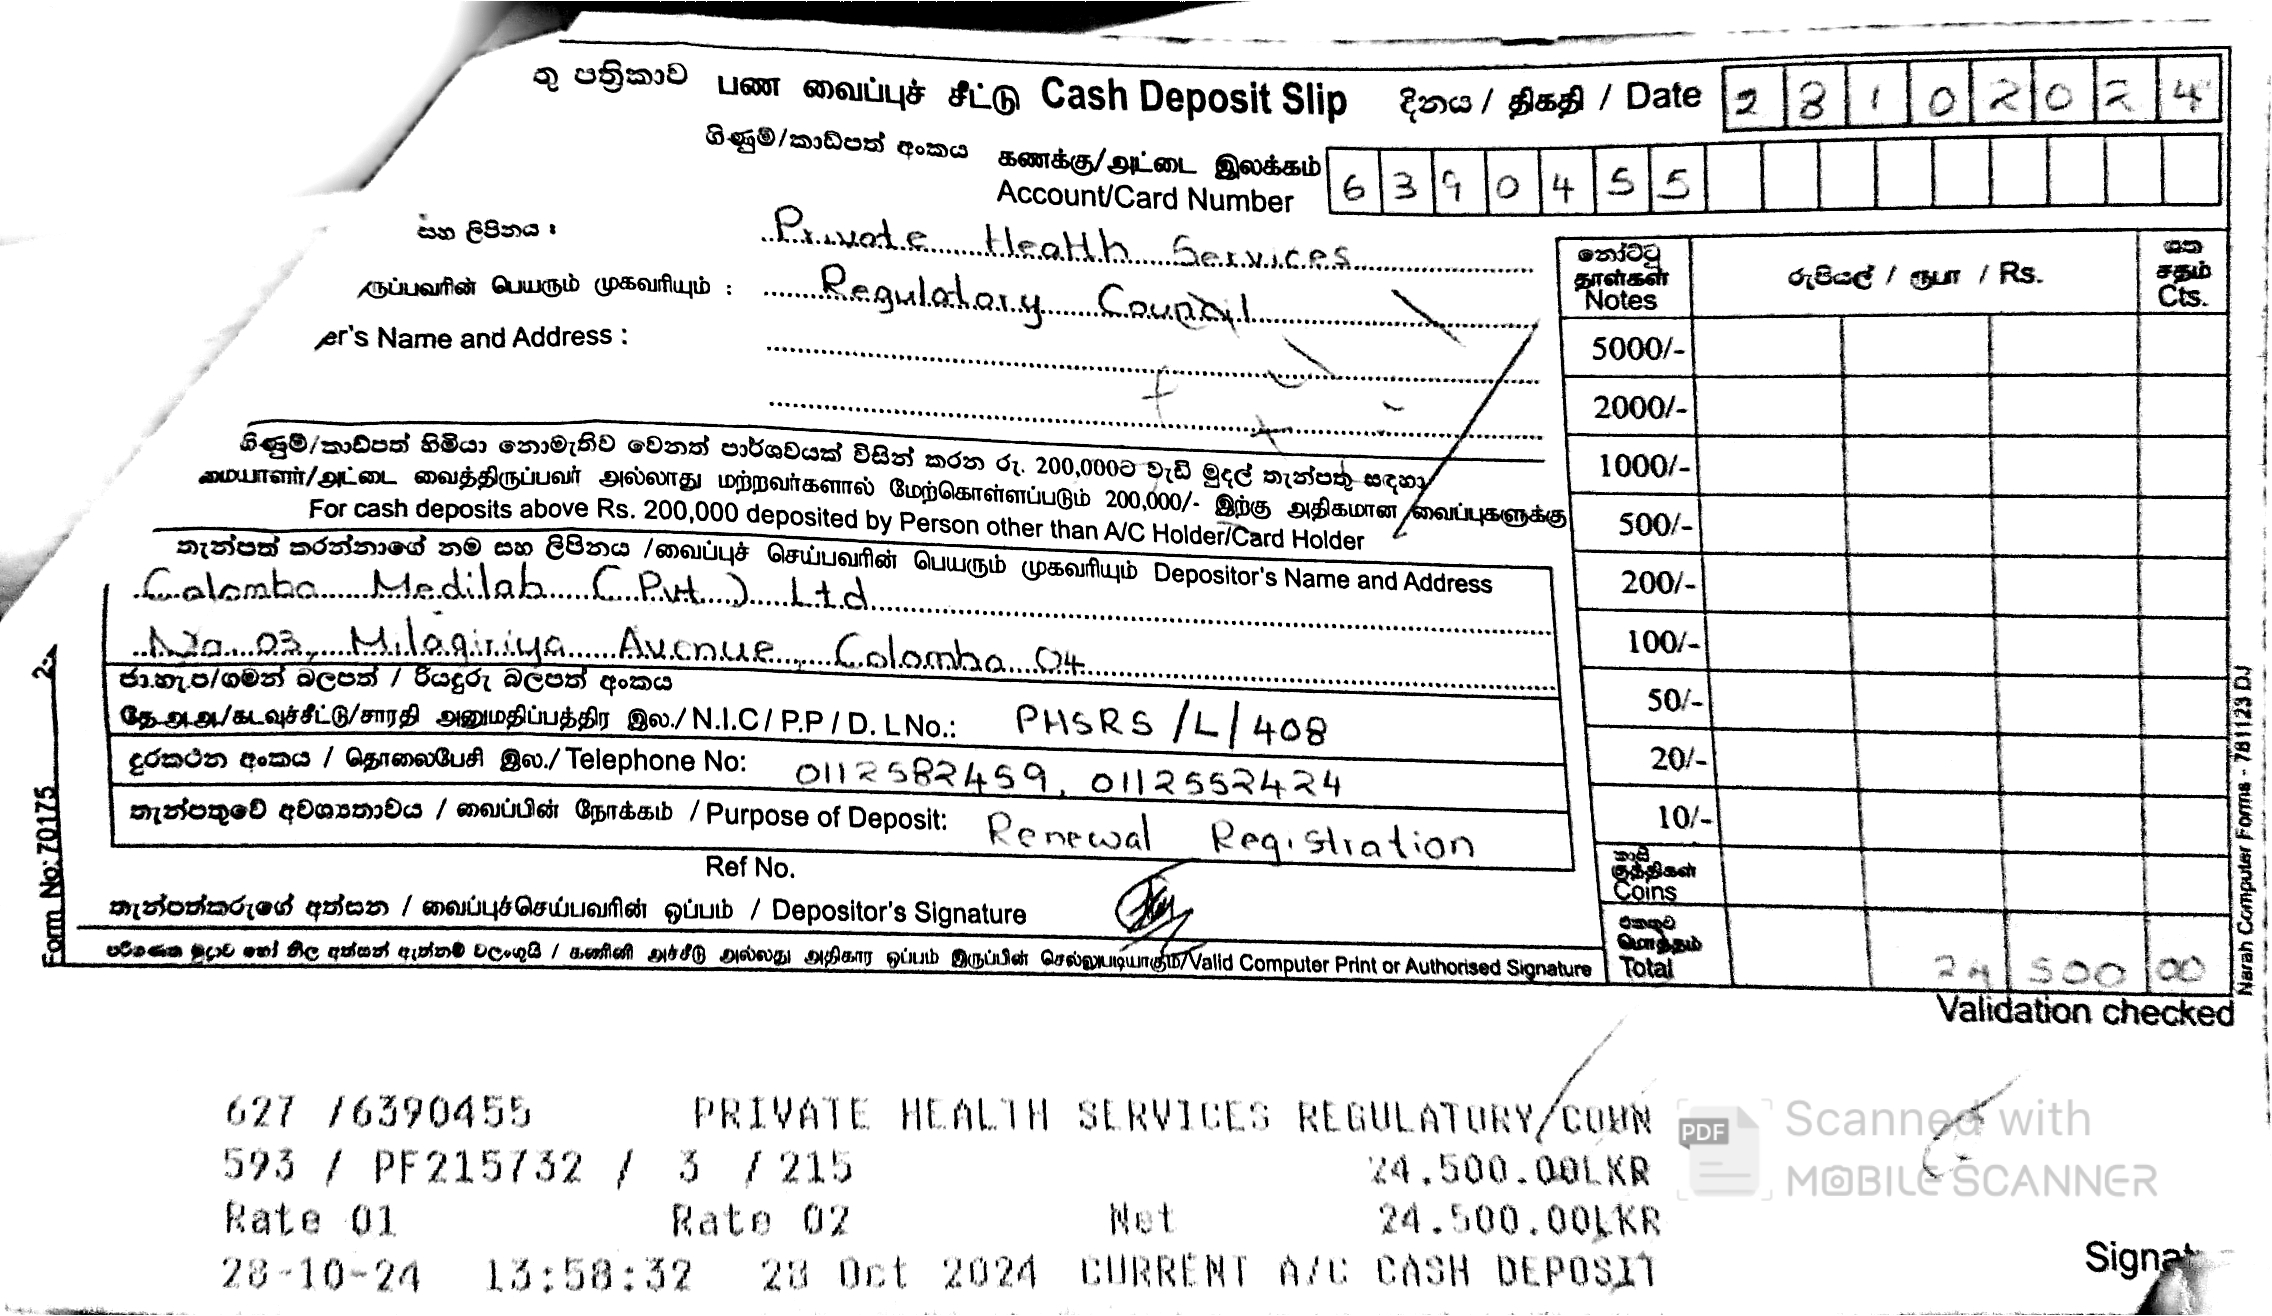 තු පත්‍රිකාව பண வைப்புச் சீட்டு Cash Deposit Slip දිනය / திகதி / Date 28102024
ගිණුම්/කාඩ්පත් අංකය கணக்கு/அட்டை இலக்கம்
Account/Card Number 6390455
සහ ලිපිනය : Private Health Services
ருப்பவரின் பெயரும் முகவரியும் : Regulatory Council
er's Name and Address :
නෝට්ටු රුපියල් / ரூபா / Rs. ශත
தாள்கள் சதம்
Notes Cts.
5000/-
2000/-
1000/-
500/-
200/-
100/-
50/-
20/-
10/-
කාසි
குத்திகள்
Coins
එකතුව
மொத்தம்
Total 24 500 00
ගිණුම්/කාඩ්පත් හිමියා නොමැතිව වෙනත් පාර්ශවයක් විසින් කරන රු. 200,000ට වැඩි මුදල් තැන්පතු සඳහා
மையாளர்/அட்டை வைத்திருப்பவர் அல்லாது மற்றவர்களால் மேற்கொள்ளப்படும் 200,000/- இற்கு அதிகமான வைப்புகளுக்கு
For cash deposits above Rs. 200,000 deposited by Person other than A/C Holder/Card Holder
තැන්පත් කරන්නාගේ නම සහ ලිපිනය /வைப்புச் செய்பவரின் பெயரும் முகவரியும் Depositor's Name and Address
Colombo Medilab (Pvt) Ltd
No. 03, Milagiriya Avenue, Colombo 04
ජා.හැ.ප/ගමන් බලපත් / රියදුරු බලපත් අංකය
தே.அ.அ/கடவுச்சீட்டு/சாரதி அனுமதிப்பத்திர இல./ N.I.C / P.P / D. L No.: PHSRS /L/ 408
දුරකථන අංකය / தொலைபேசி இல./ Telephone No: 0112582459, 0112552424
තැන්පතුවේ අවශ්‍යතාවය / வைப்பின் நோக்கம் / Purpose of Deposit: Renewal Registration
Ref No.
තැන්පත්කරුගේ අත්සන / வைப்புச்செய்பவரின் ஒப்பம் / Depositor's Signature
පරිගණක මුද්‍රාව හෝ නිල අත්සන් ඇත්නම් වලංගුයි / கணினி அச்சீடு அல்லது அதிகார ஒப்பம் இருப்பின் செல்லுபடியாகும்/Valid Computer Print or Authorised Signature
Form No: 70175
Narah Computer Forms - 781123 DJ
Validation checked
627 /6390455 PRIVATE HEALTH SERVICES REGULATORY COUN
593 / PF215732 / 3 / 215 24.500.00LKR
Rate 01 Rate 02 Net 24.500.00LKR
28-10-24 13:58:32 28 Oct 2024 CURRENT A/C CASH DEPOSIT
PDF Scanned with
MOBILE SCANNER
Signat